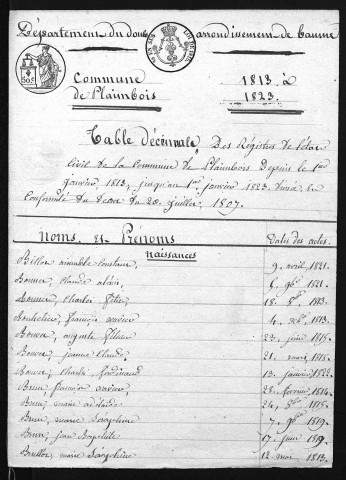 Département du doubs arrondissement de baume
Commune
de Plaimbois
1813 à
1823.
Table Décennale, Des Régistres de l'état
civil de la Commune de Plaimbois Depuis le 1er
janvier 1813, jusqu'au 1er janvier 1823. dressée en
Conformité du Décret du 20. juillet, 1807.
Noms et Prénoms Dates des actes.
Naissances
Billod aimable constant, 9. avril, 1821.
claude 6. 9bre 1821.
charles 18. 8bre 1813.
françois xavier 4. 1813.
auguste 23. juin 1815.
jeanne claude, 21. mars 1815.
charles ferdinand 13. janvier 1822.
Brun françois xavier, 28. fevrier, 1814.
Brun, marie adelaide 24. 1815.
Brun, marie Séraphine 7. 9bre 1819.
Brun, jean Baptiste 17. juin 1819.
marie Séraphine 12. mai 1813.